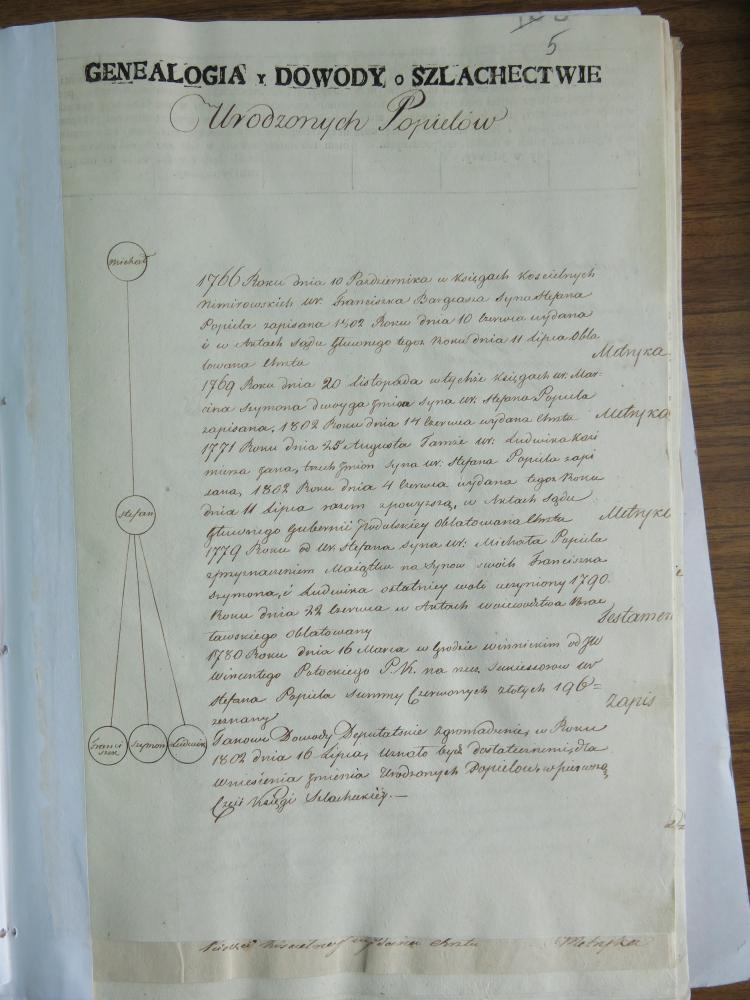 5
GENEALOGIA Y DOWODY o SZLACHECTWIE
Urodzonych Popielów
Michał
1766 Roku dnia 10 Pazdziernika w Księgach Koscielnych
Nimirowskich ur. Franciszka Syna Stefana
Popiela zapisana 1802 Roku dnia 10 Czerwca wydana
i w Aktach Sądu Głównego tegoz Roku dnia 11 Lipca Obla
towana Chrztu
Metryka
1769 Roku dnia 20 Listopada w tychże Księgach ur. Mar
cina Szymona dwoyga Imion Syna ur. Stefana Popiela
zapisana, 1802 Roku dnia 14 Czerwca wydana Chrztu
Metryka
1771 Roku dnia 25 Augusta Tamże ur. Ludwika Kazi
mierza Jana, trzech Imion Syna ur. Stefana Popiela zapi
sana, 1802 Roku dnia 4 Czerwca wydana tegoz Roku
dnia 11 Lipca razem z powyzszą, w Aktach Sądu
Głównego Gubernii Podolskiey Oblatowana Chrztu
Metryka
Stefan
1779 Roku od Ur. Stefana Syna ur. Michała Popiela
z przyznaczeniem Maiątku na Synow swoich Franciszka
Szymona, i Ludwika ostatniey woli uczyniony 1790
Roku dnia 22 Czerwca w Aktach Woiewodztwa Brac
ławskiego Oblatowany
Testamen
1780 Roku dnia 16 Marca w Grodzie Winnickim od JW
Wincentego Potockiego P.K. na rzecz Sukcessorow ur
Stefana Popiela Summy Czerwonych złotych 196=
zeznany
Zapis
Franci
szek
Szymon
Ludwik
Takowe Dowody Deputatskie zgromadzenie, w Roku
1802 dnia 16 Lipca, Uznało bydź dostatecznemi, dla
Wniesienia Imienia Urodzonych Popielow, w pierwszą
Częsć Księgi Szlacheckiey.—
wydana Chrztu
Metryka